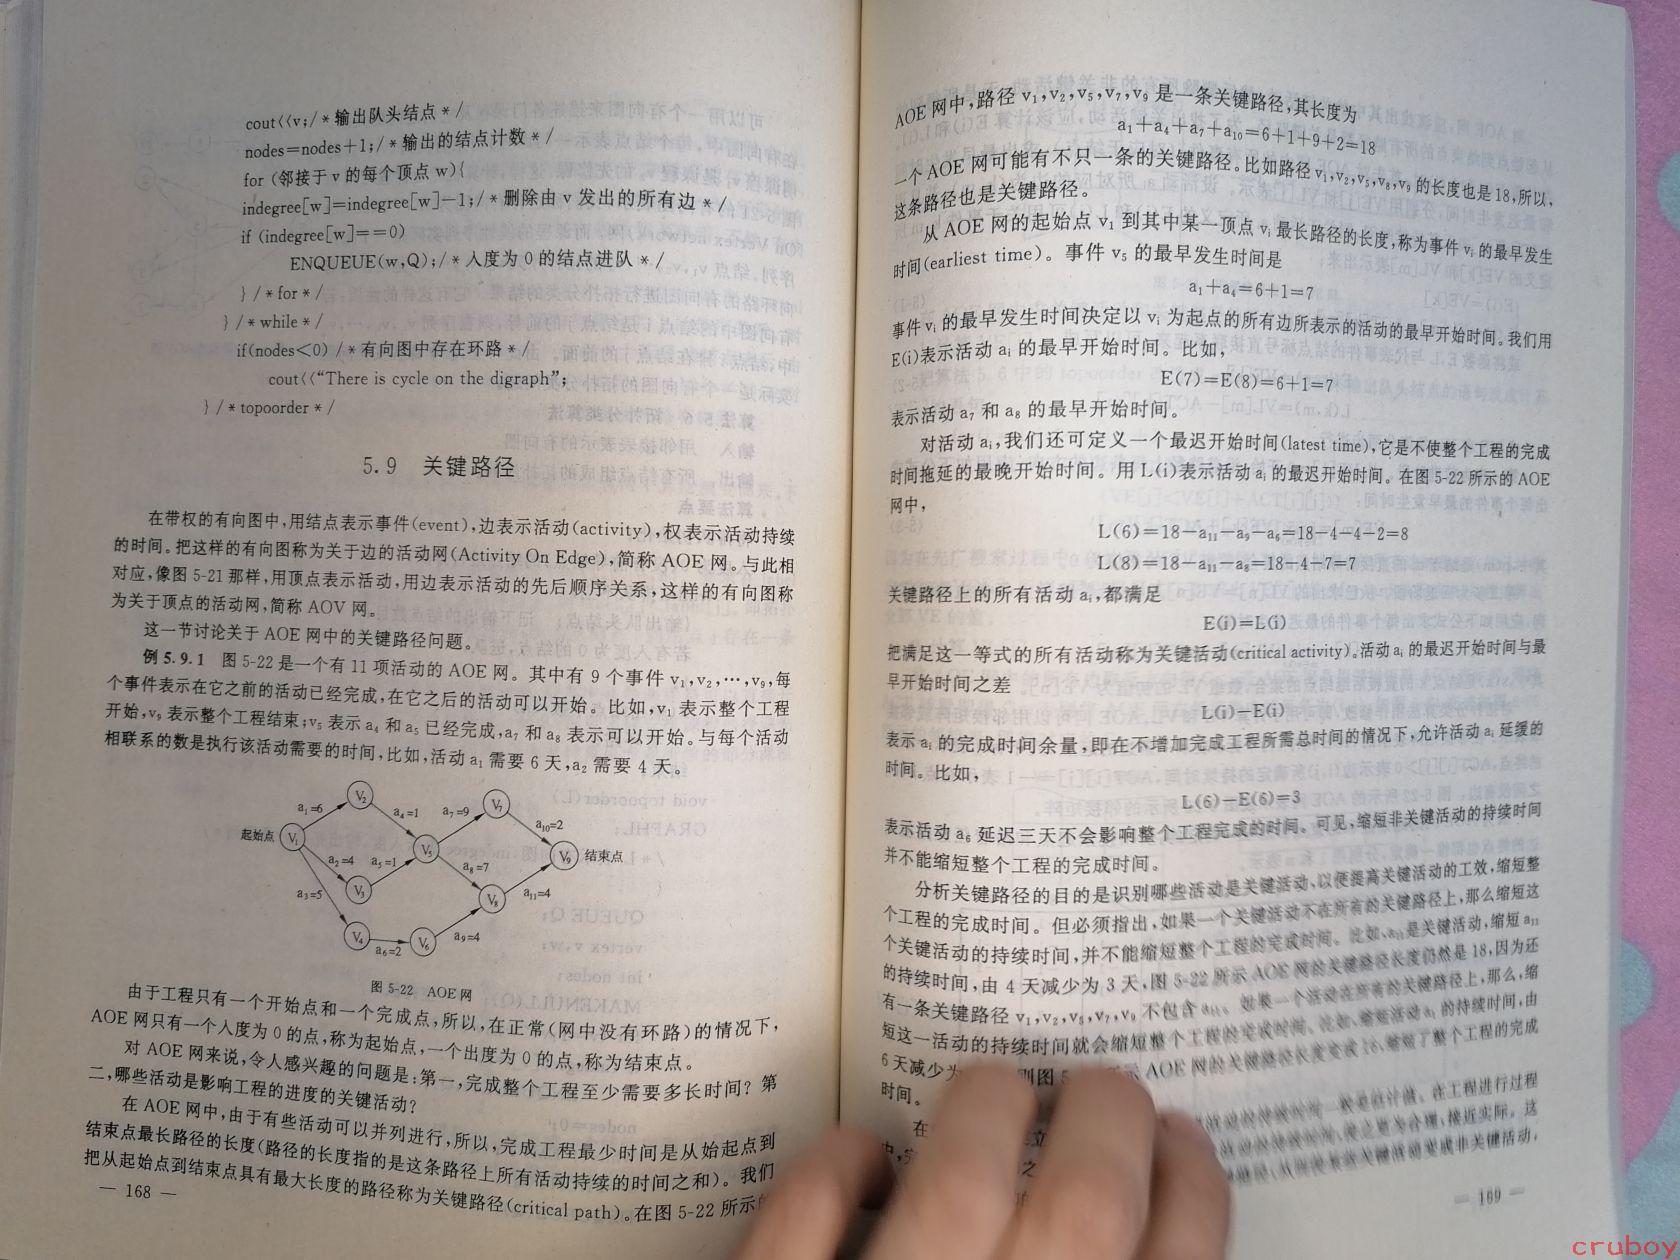 cout<<v;/*输出队头结点*/
nodes=nodes+1;/*输出的结点计数*/
for (邻接于v的每个顶点w){
indegree[w]=indegree[w]-1;/*删除由v发出的所有边*/
if (indegree[w]==0)
ENQUEUE(w,Q);/*入度为0的结点进队*/
}/*for*/
}/*while*/
if(nodes<0) /*有向图中存在环路*/
cout<<“There is cycle on the digraph”;
}/*topoorder*/
5.9 关键路径
在带权的有向图中,用结点表示事件(event),边表示活动(activity),权表示活动持续
的时间。把这样的有向图称为关于边的活动网(Activity On Edge),简称AOE网。与此相
对应,像图5-21那样,用顶点表示活动,用边表示活动的先后顺序关系,这样的有向图称
为关于顶点的活动网,简称AOV网。
这一节讨论关于AOE网中的关键路径问题。
例5.9.1 图5-22是一个有11项活动的AOE网。其中有9个事件v₁,v₂,…,v₉,每
个事件表示在它之前的活动已经完成,在它之后的活动可以开始。比如,v₁表示整个工程
开始,v₉表示整个工程结束;v₅表示a₄和a₅已经完成,a₇和a₈表示可以开始。与每个活动
相联系的数是执行该活动需要的时间,比如,活动a₁需要6天,a₂需要4天。
起始点 V₁ V₂ V₃ V₄ V₅ V₆ V₇ V₈ V₉ 结束点
a₁=6 a₂=4 a₃=5 a₄=1 a₅=1 a₆=2 a₇=9 a₈=7 a₉=4 a₁₀=2 a₁₁=4
图5-22 AOE网
由于工程只有一个开始点和一个完成点,所以,在正常(网中没有环路)的情况下,
AOE网只有一个入度为0的点,称为起始点,一个出度为0的点,称为结束点。
对AOE网来说,令人感兴趣的问题是:第一,完成整个工程至少需要多长时间?第
二,哪些活动是影响工程的进度的关键活动?
在AOE网中,由于有些活动可以并列进行,所以,完成工程最少时间是从始起点到
结束点最长路径的长度(路径的长度指的是这条路径上所有活动持续的时间之和)。我们
把从起始点到结束点具有最大长度的路径称为关键路径(critical path)。在图5-22所示的
— 168 —
AOE网中,路径v₁,v₂,v₅,v₇,v₉是一条关键路径,其长度为
a₁+a₄+a₇+a₁₀=6+1+9+2=18
一个AOE网可能有不只一条的关键路径。比如路径v₁,v₂,v₅,v₈,v₉的长度也是18,所以,
这条路径也是关键路径。
从AOE网的起始点v₁到其中某一顶点vᵢ最长路径的长度,称为事件vᵢ的最早发生
时间(earliest time)。事件v₅的最早发生时间是
a₁+a₄=6+1=7
事件vᵢ的最早发生时间决定以vᵢ为起点的所有边所表示的活动的最早开始时间。我们用
E(i)表示活动aᵢ的最早开始时间。比如,
E(7)=E(8)=6+1=7
表示活动a₇和a₈的最早开始时间。
对活动aᵢ,我们还可定义一个最迟开始时间(latest time),它是不使整个工程的完成
时间拖延的最晚开始时间。用L(i)表示活动aᵢ的最迟开始时间。在图5-22所示的AOE
网中,
L(6)=18-a₁₁-a₉-a₆=18-4-4-2=8
L(8)=18-a₁₁-a₈=18-4-7=7
关键路径上的所有活动aᵢ,都满足
E(i)=L(i)
把满足这一等式的所有活动称为关键活动(critical activity)。活动aᵢ的最迟开始时间与最
早开始时间之差
L(i)-E(i)
表示aᵢ的完成时间余量,即在不增加完成工程所需总时间的情况下,允许活动aᵢ延缓的
时间。比如,
L(6)-E(6)=3
表示活动a₆延迟三天不会影响整个工程完成的时间。可见,缩短非关键活动的持续时间
并不能缩短整个工程的完成时间。
分析关键路径的目的是识别哪些活动是关键活动,以便提高关键活动的工效,缩短整
个工程的完成时间。但必须指出,如果一个关键活动不在所有的关键路径上,那么缩短这
个关键活动的持续时间,并不能缩短整个工程的完成时间。比如,a₁₁是关键活动,缩短a₁₁
的持续时间,由4天减少为3天,图5-22所示AOE网的关键路径长度仍然是18,因为还
有一条关键路径v₁,v₂,v₅,v₇,v₉不包含a₁₁。如果一个活动在所有的关键路径上,那么,缩
短这一活动的持续时间就会缩短整个工程的完成时间。比如,缩短活动a₁的持续时间,由
6天减少为 则图5 所示AOE网的关键路径长度变成16,缩短了整个工程的完成
时间。
在 活动的持续时间一般是估计值。在工程进行过程
中,完 活动的持续时间,使之更为合理,接近实际。这
从而使某些关键活动变成非关键活动,
— 169 —
cruboy